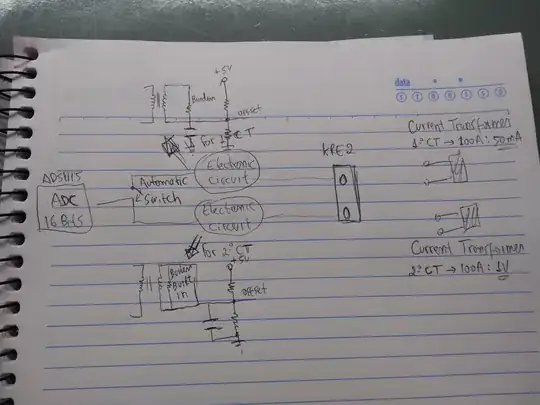 +5V
Burden
offset
for 1° CT
data
S T Q Q S S D
Current Transformer
1° CT → 100A: 50mA
KRE2
ADS1115
ADC
16 Bits
Automatic
Switch
Electronic
Circuit
Electronic
Circuit
for 2° CT
+5V
Burden
Built
in
offset
Current Transformer
2° CT → 100A: 1V